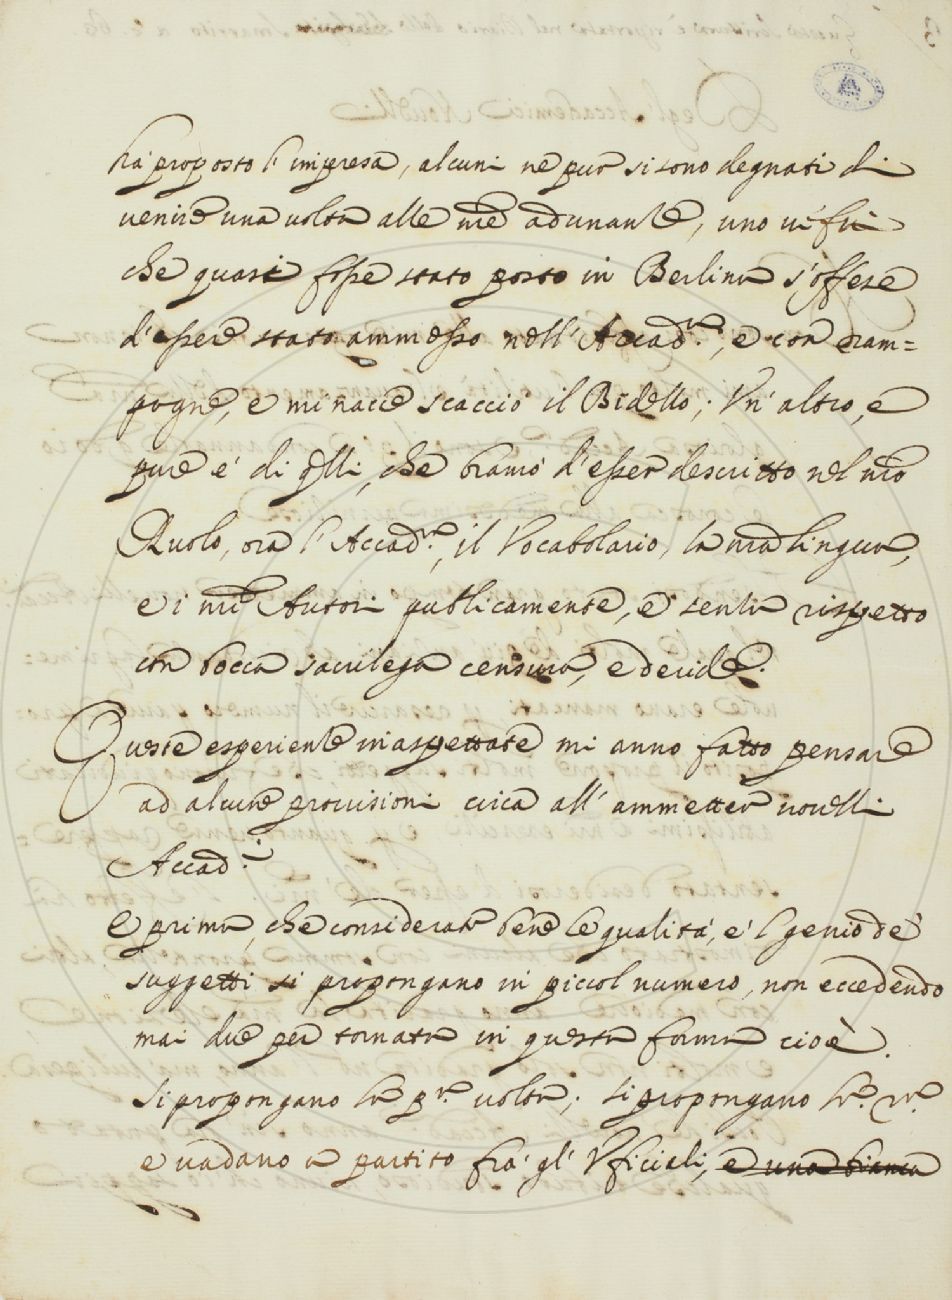 3
ha' proposto l'impresa, alcuni ne pur si sono degnati di
venire una volta alle nre adunanze, uno vi fu
che quasi fosse stato posto in Berlina s'offese
d'essere stato ammesso nell'Accad.ª, e con ram=
pogne, e minacce scacciò il Bidello; Un'altro, e
pure e' di qlli, che bramò d'esser descritto nel nro
Ruolo, ora l'Accad.ª, il Vocabolario, la nra lingua,
e i nri Autori publicamente, e senza rispetto
con bocca sacrilega censura, e decide.
Queste esperienze inaspettate mi anno fatto pensare
ad alcune provisioni circa all'ammetter novelli
Accad.i
E prima, che considerate bene le qualità, e'l genio de'
suggetti si propongano in piccol numero, non eccedendo
mai due per tornata in questa forma cioè.
Si propongano la pr.ª volta; si propongano la
e vadano a partito fra' gl'Uficiali, e una bianca